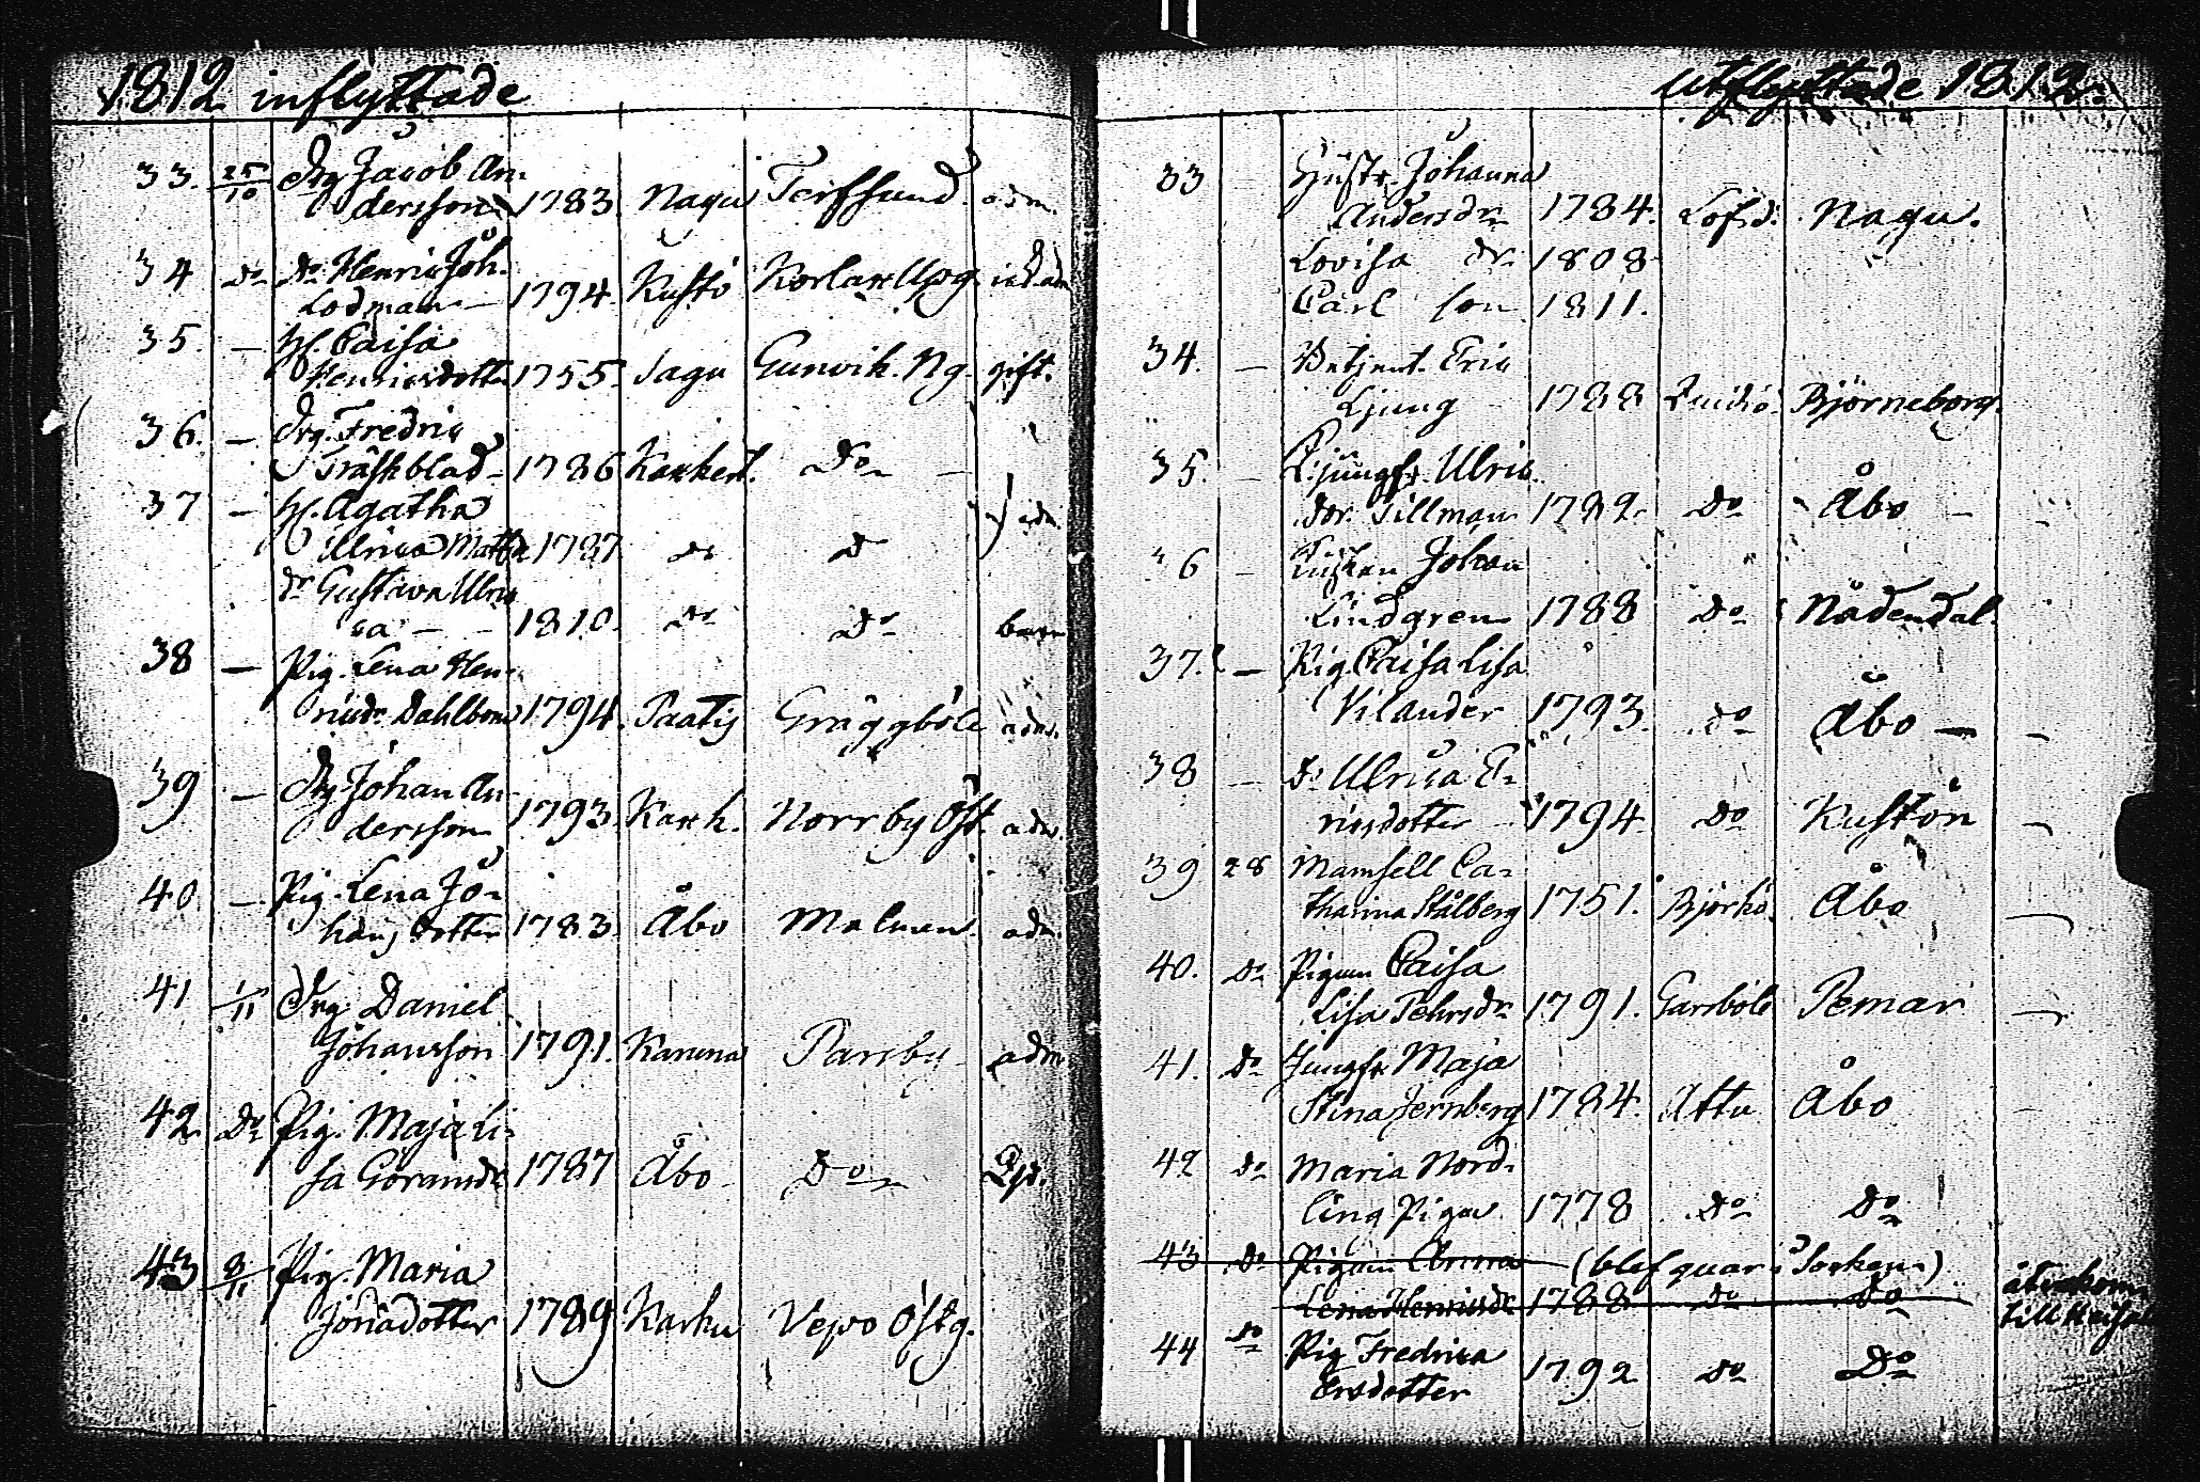 1812 inflyttade
33. 25/10 Drg Jacob An-
dersson 1783. Nagu Terfsund. adm.
34 Do Do Henric Joh.
Lodman - 1794. Kustö
35. - H. Caisa
Henricsdotter 1755. Sagu Gunvik. Ng. gift.
36. - Drg. Fredric
Träskblad - 1786 Do -
37 - H. Agatha
Ulrica 1787 Do D adm.
dr Gustava Ulric
ca - - 1810. Do Do barn
38 - Pig. Lena Hen-
ricsdr Dahlbom 1794. Gräggböle adm.
39 - Drg Johan An-
dersson 1793. Karh. Norrby Öst. adm.
40. - Pig. Lena Jo-
hansdotter 1783. Åbo Malmen. adm.
41 1/11 Drg. Daniel
Johansson 1791. Karuna Parsby adm
42. Do Pig. Maja Li-
sa Göransdr 1787 Åbo Do
43 8/11 Pig. Maria
Jönsdotter 1789 Karku Vepo Östg.
utflyttade 1812.
33 - Hustr. Johanna
Andersdr 1784. Lofsd. Nagu.
Lovisa dr 1808
Carl son 1811.
34. - Betjent. Eric
Ljung 1788 Björneborg.
35. - Jungfr. Ulric.
Dor. Tillman 1782. Do Åbo -
36 - Johan
Lindgren 1788 Do Nådendal.
37. - Pig. Caisa Lisa
Vilander 1793. Do Åbo -
38 - Do Ulrica E-
ricsdotter 1794 Do Kustön
39 28 Mamsell Ca-
tharina Stålberg 1751. Björkö. Åbo
40. Do Pigan Caisa
Lisa Pehrsdr 1791. Garsböle Pemar
41. Do Jungfr Maja
Stina Jernberg 1784. Attu Åbo
42 Do Maria Nord-
ling Pigan 1778 Do Do
43 Do Pigan Anna (blef quar i Socken)
Lena Henricsdr 1788 Do Do återkom
till
44 Do Pig Fredrica
Ersdotter 1792 Do Do